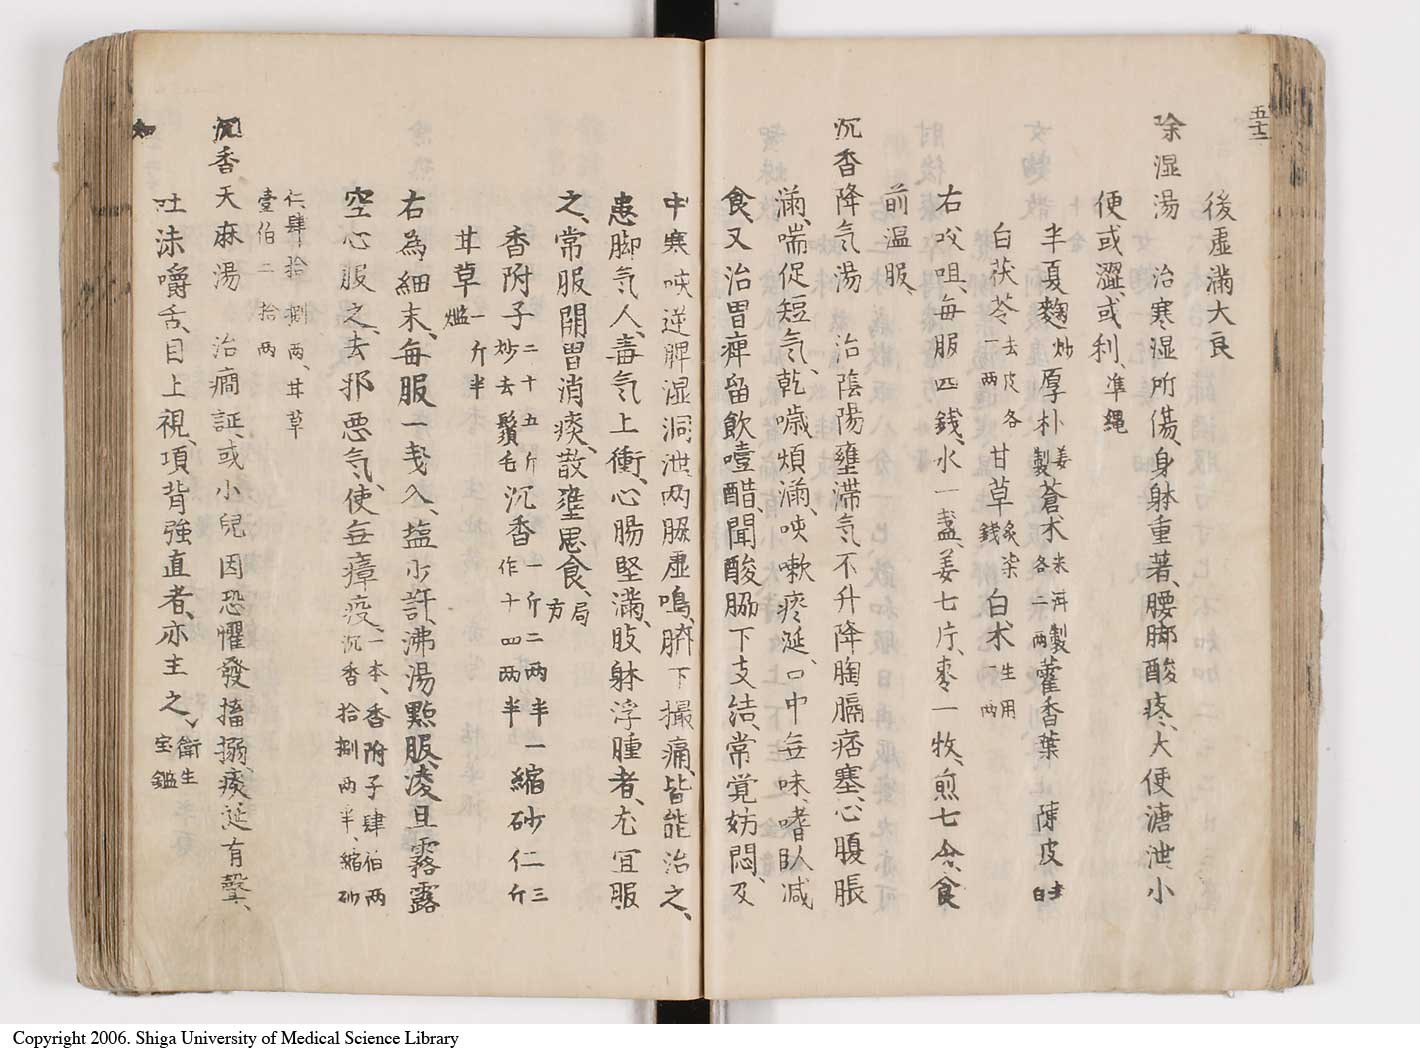 五十二
後虚滿大良
除湿湯 治寒湿所傷、身躰重著、腰脚酸疼、大便溏泄、小
便或澀、或利、準繩
半夏麴炒厚朴姜製蒼术米泔製各二兩藿香葉 陳皮去白
白茯苓去皮各一兩甘草炙柒錢白术生用一兩
右㕮咀、每服四錢、水一盞、姜七片、枣一牧、煎七分、食
前温服
沉香降気湯 治陰陽壅滞気不升降胸膈痞塞、心腹脹
滿、喘促短気、乾噦煩滿、咳嗽痰涎、口中無味、嗜臥減
食、又治胃痺留飲噫醋、聞酸脇下支结、常覚妨悶、及
中寒咳逆脾湿洞泄、两脇虚鳴、臍下撮痛、皆能治之、
患脚気人、毒気上衝、心腸堅滿、肢躰浮腫者、尤宜服
之、常服開胃消痰、散壅思食、局方
香附子二十五斤炒去鬚毛沉香一斤二兩半一作十四兩半縮砂仁三斤
甘草一斤半爁
右為細末、每服一戋入、塩少許、沸湯點服、凌旦霧露
空心服之、去邪悪気、使無瘴疫、一本、香附子肆伯兩沉香拾捌两半、縮砂
仁肆拾捌两、甘草壹伯二拾兩
沉香天麻湯 治癇証、或小兒因恐懼發搐搦、痰涎有聲、
吐沫嚼舌、目上視、項背強直者、亦主之、衛生宝鑑
Copyright 2006. Shiga University of Medical Science Library